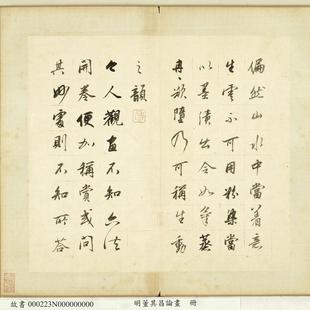 偏然山水中當着意
生雲不可用粉染當
以墨漬出令如氣蒸
冉冉欲墮乃可稱生動
之韻
今人觀畫不知六法
開卷便加稱賞或問
其妙處則不知所荅
故書 000223N000000000 明董其昌論畫 冊